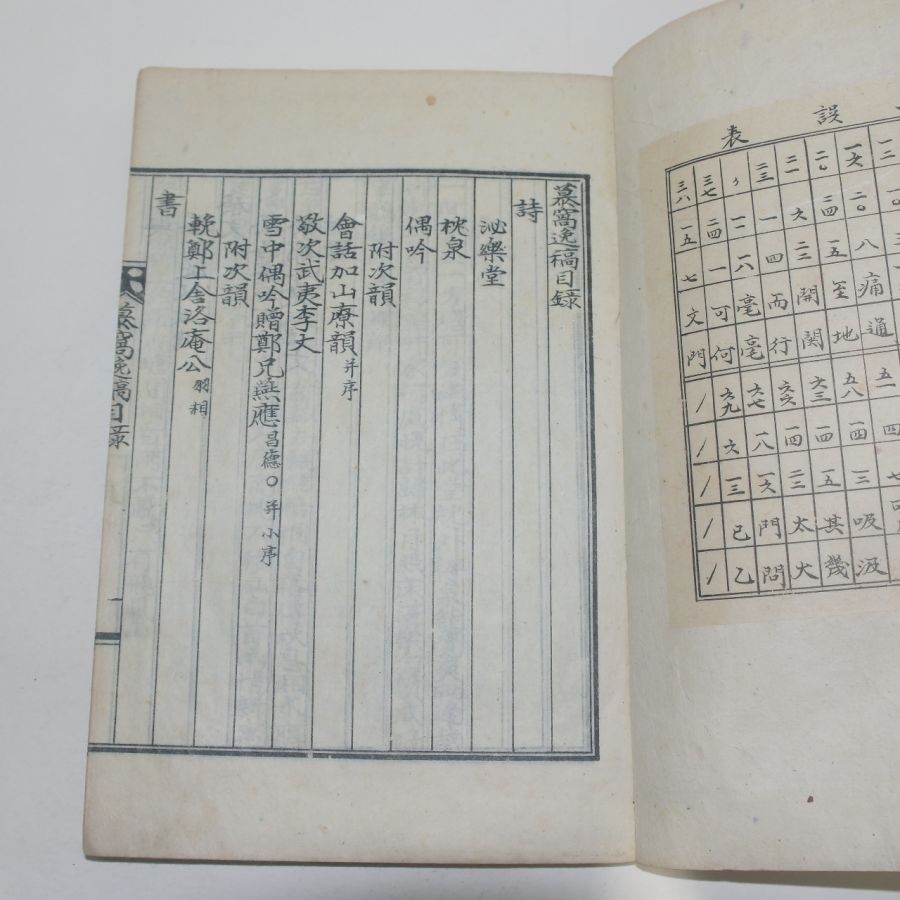 誤表
一二 一〇
一六 二〇 八 痛 通
二〇 二四 五 至 地
二一 六 二三 開 関
二三 一 四 而 行
一一 一六 毫 毫
三七 二四 一 可 何
三六 一五 七 文 門
五一 四 七
五八 一四 三 吸 汲
六三 一四 五 其 幾
六六 一四 二二 太 大
六七 一八 一六 門 問
六九 六 一三 已 乙
慕窩逸稿目録
詩
泌樂堂
枕泉
偶吟
附次韻
會話加山療韻 并序
敬次武夷李丈
雪中偶吟贈鄭兄無應 昌德○并小序
附次韻
輓鄭上舍洛庵公 羽相
書
慕窩逸稿目録
一